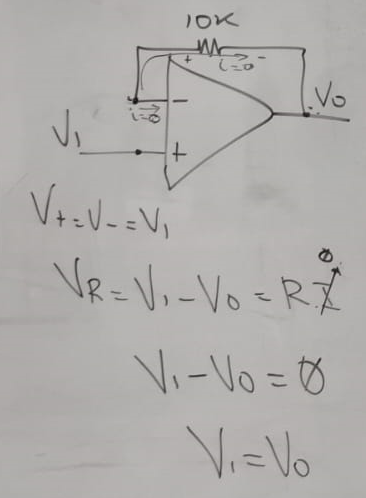 10K
+ i=0 -
i=0 -
V0
V1
+
V+=V-=V1
VR=V1-V0=RI 0
V1-V0=0
V1=V0